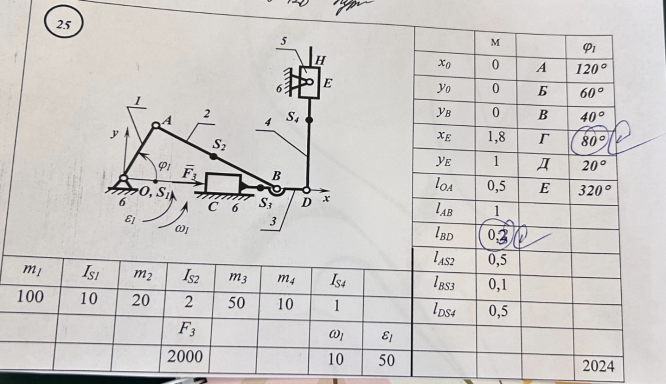 25
5
H
6
E
S4
1
A
2
4
y
S2
φ1
F̄3
B
6
O, S1
C
6
S3
D
x
3
ε1
ω1
м
φ1
x0 0 А 120°
y0 0 Б 60°
yB 0 В 40°
xE 1,8 Г 80°
yE 1 Д 20°
lOA 0,5 Е 320°
lAB 1
lBD
lAS2 0,5
lBS3 0,1
lDS4 0,5
2024
m1 IS1 m2 IS2 m3 m4 IS4
100 10 20 2 50 10 1
F3 ω1 ε1
2000 10 50